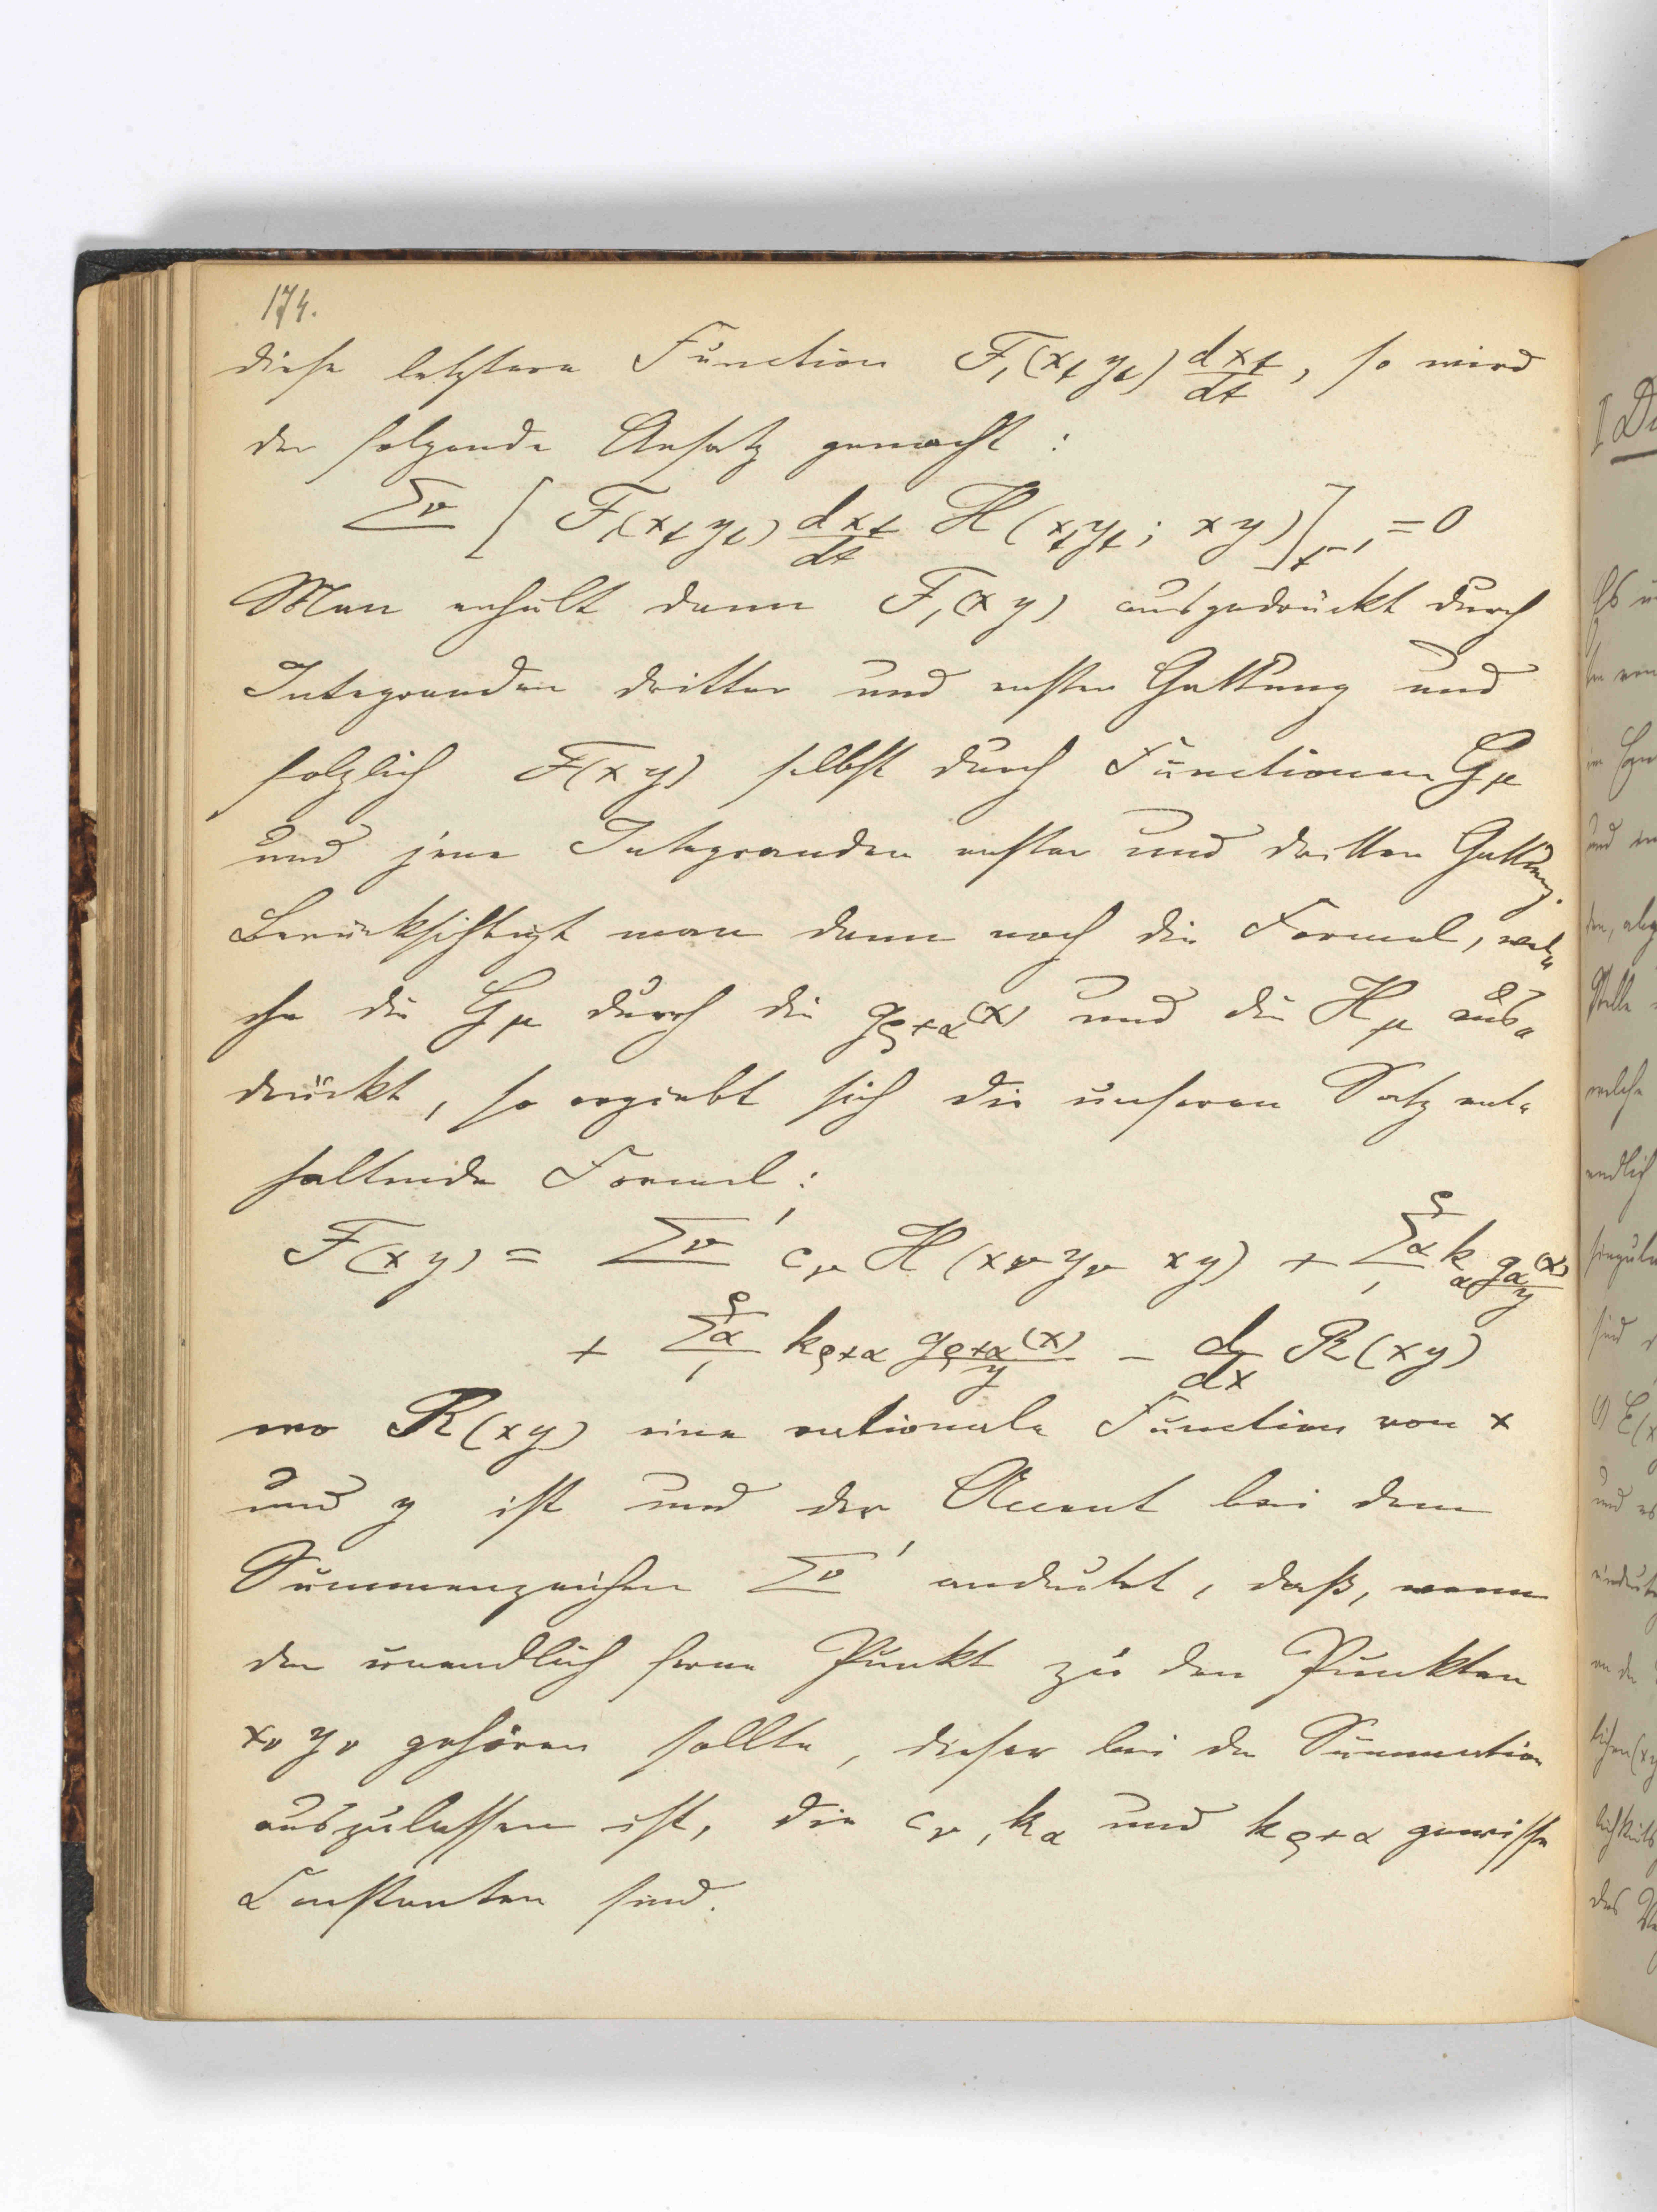 174.
diese letztere Function F₁(x_t y_t) dx_t/dt, so wird
der folgende Ansatz gemacht:
Σν [F₁(x_t y_t) dx_t/dt H(x_t y_t; xy)]_{t^-1} = 0
Man erhält dann F₁(xy) ausgedrückt durch
Integranden dritter und erster Gattung und
folglich F(xy) selbst durch Functionen G_μ
und jene Integranden erster und dritter Gattung.
Berücksichtigt man dann noch die Formel, wel-
che die G_μ durch die g_{ρ+α}(x) und die H_μ aus-
drückt, so ergiebt sich die unseren Satz ent-
haltende Formel:
F(xy) = Σν' c_ν H(x_ν y_ν xy) + Σα₁^ρ k_α g_α(x)/y
+ Σα₁^ρ k_{ρ+α} g_{ρ+α}(x)/y − d/dx R(xy)
wo R(xy) eine rationale Function von x
und y ist und der Accent bei dem
Summenzeichen Σν' andeutet, daß, wenn
der unendlich ferne Punkt zu den Punkten
x_ν y_ν gehören sollte, dieser bei der Summation
auszulassen ist, die c_ν, k_α und k_{ρ+α} gewisse
Constanten sind.